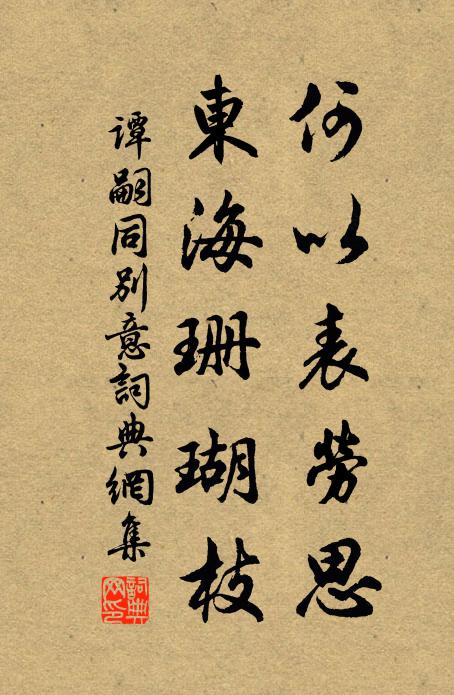 何以表勞思
東海珊瑚枝
譚嗣同別意詞典網集
詞典网印